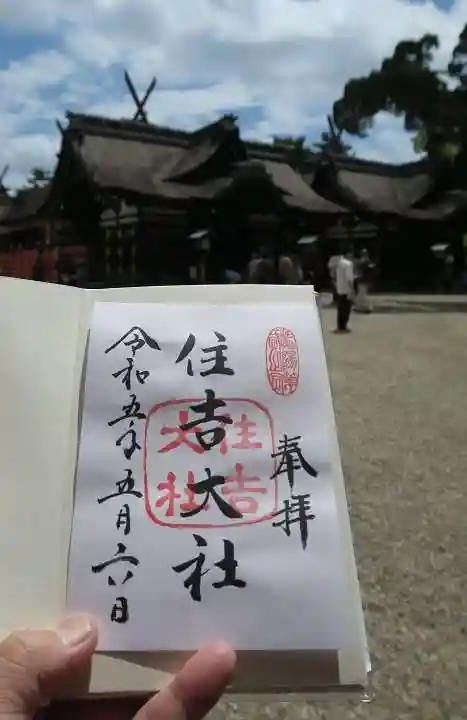 奉拝
住吉大社
住吉
大社
令和五年五月六日